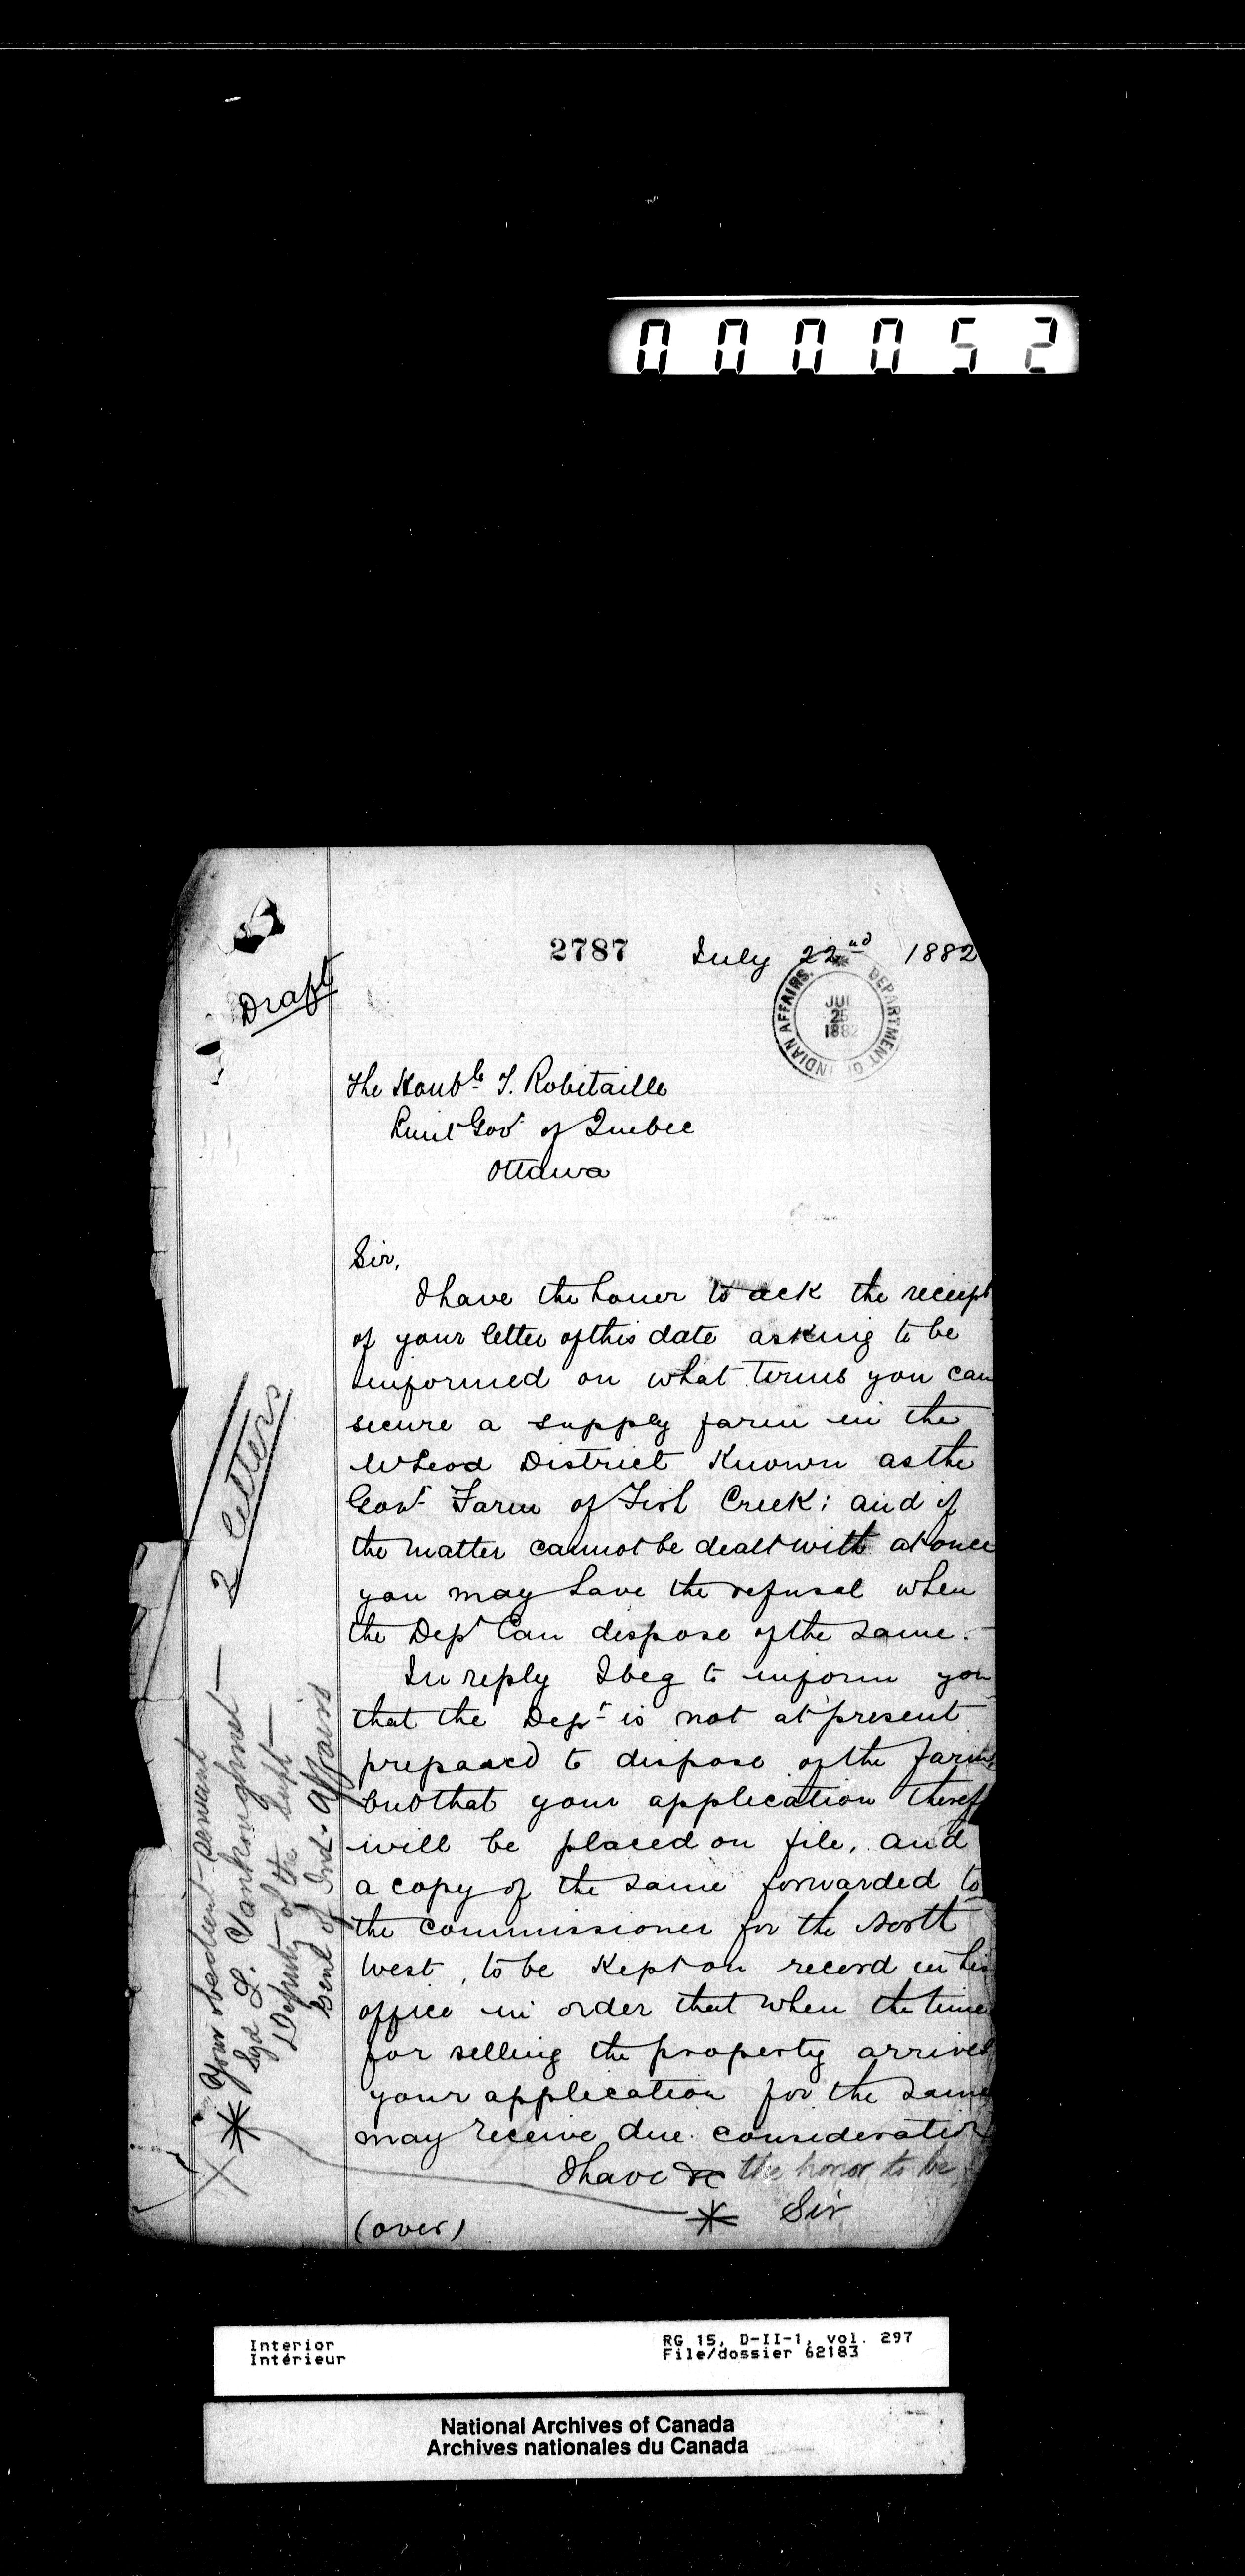 000052
2787 July 22nd 1882
Draft
DEPARTMENT OF INDIAN AFFAIRS.
JUL
25
1882
The Honble T. Robitaille
Lieut Govr of Quebec
Ottawa
Sir,
I have the honor to ack the receipt
of your letter of this date asking to be
informed on what terms you can
secure a supply farm in the
McLeod District Known as the
Govt Farm of Fish Creek; and if
the matter cannot be dealt with at once
you may have the refusal when
the Dept Can dispose of the same.
In reply I beg to inform you
that the Dept is not at present
prepared to dispose of the farm,
but that your application theref
will be placed on file, and
a copy of the same forwarded to
the Commissioner for the North
West, to be Kept on record in his
office in order that when the time
for selling the property arrives
your application for the same
may receive due consideration
I have &c the honor to be
Sir
(over)
2 letters
Your obedient servant
Sgd L. Vankoughnet
Deputy of the Supt
Genl of Ind. Affairs
Interior
Intérieur
RG 15, D-II-1, vol. 297
File/dossier 62183
National Archives of Canada
Archives nationales du Canada